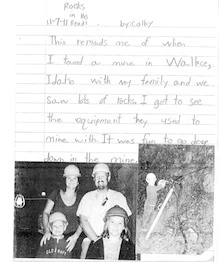 Rocks
in his
11-7-11 Head! by: Colby
This reminds me of when
I toured a mine in Wallace,
Idaho with my family and we
saw lots of rocks. I got to see
the equipment they used to
mine with. It was fun to go deep
down in the mine.
OLD NAVY